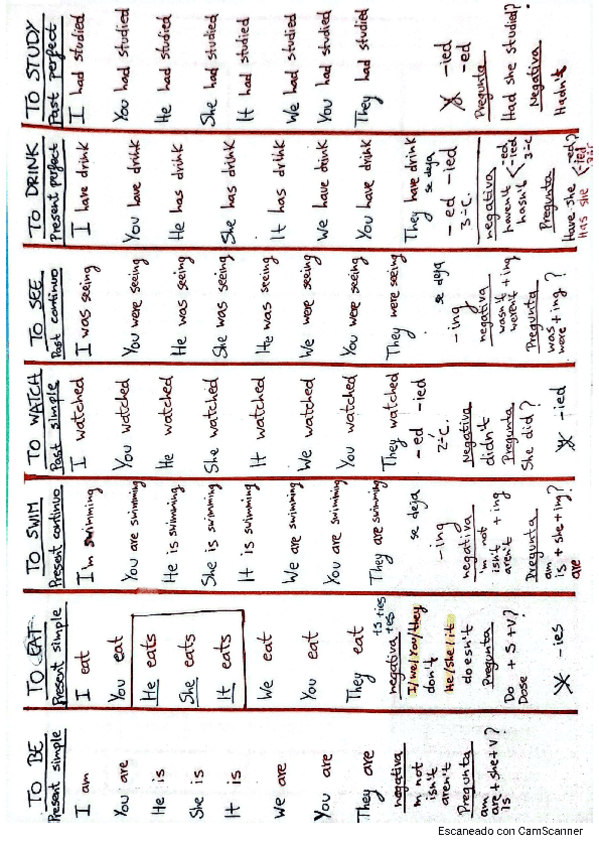 TO BE
Present simple
I am
You are
He is
She is
It is
We are
You are
They are
negativa
'm not
isn't
aren't
Pregunta
am
are + she + V?
is
TO EAT
Present simple
I eat
You eat
He eats
She eats
It eats
We eat
You eat
They eat
+s +ies
+es
negativa
I/we/You/they
don't
He/she/it
doesn't
Pregunta
Do + S + V?
Dose
y -ies
TO SWIM
Present continuo
I'm swimming
You are swimming
He is swimming
She is swimming
It is swimming
We are swimming
You are swimming
They are swimming
se deja
-ing
negativa
'm not
isn't + ing
aren't
Pregunta
am
is + she + ing?
are
TO WATCH
Past simple
I watched
You watched
He watched
She watched
It watched
We watched
You watched
They watched
-ed -ied
2ªC.
Negativa
didn't
Pregunta
She did?
y -ied
TO SEE
Past continuo
I was seeing
You were seeing
He was seeing
She was seeing
It was seeing
We were seeing
You were seeing
They were seeing
se deja
-ing
negativa
wasn't + ing
weren't
Pregunta
was + ing?
were
TO DRINK
Present perfect
I have drink
You have drink
He has drink
She has drink
It has drink
We have drink
You have drink
They have drink
se deja
-ed -ied
3ªC.
negativa
haven't -ed
hasn't -ied
3ªC
Pregunta
Have she -ed?
Has she -ied
TO STUDY
Past perfect
I had studied
You had studied
He had studied
She had studied
It had studied
We had studied
You had studied
They had studied
y -ied
-ed
Pregunta
Had she studied?
Negativa
Hadn't
Escaneado con CamScanner